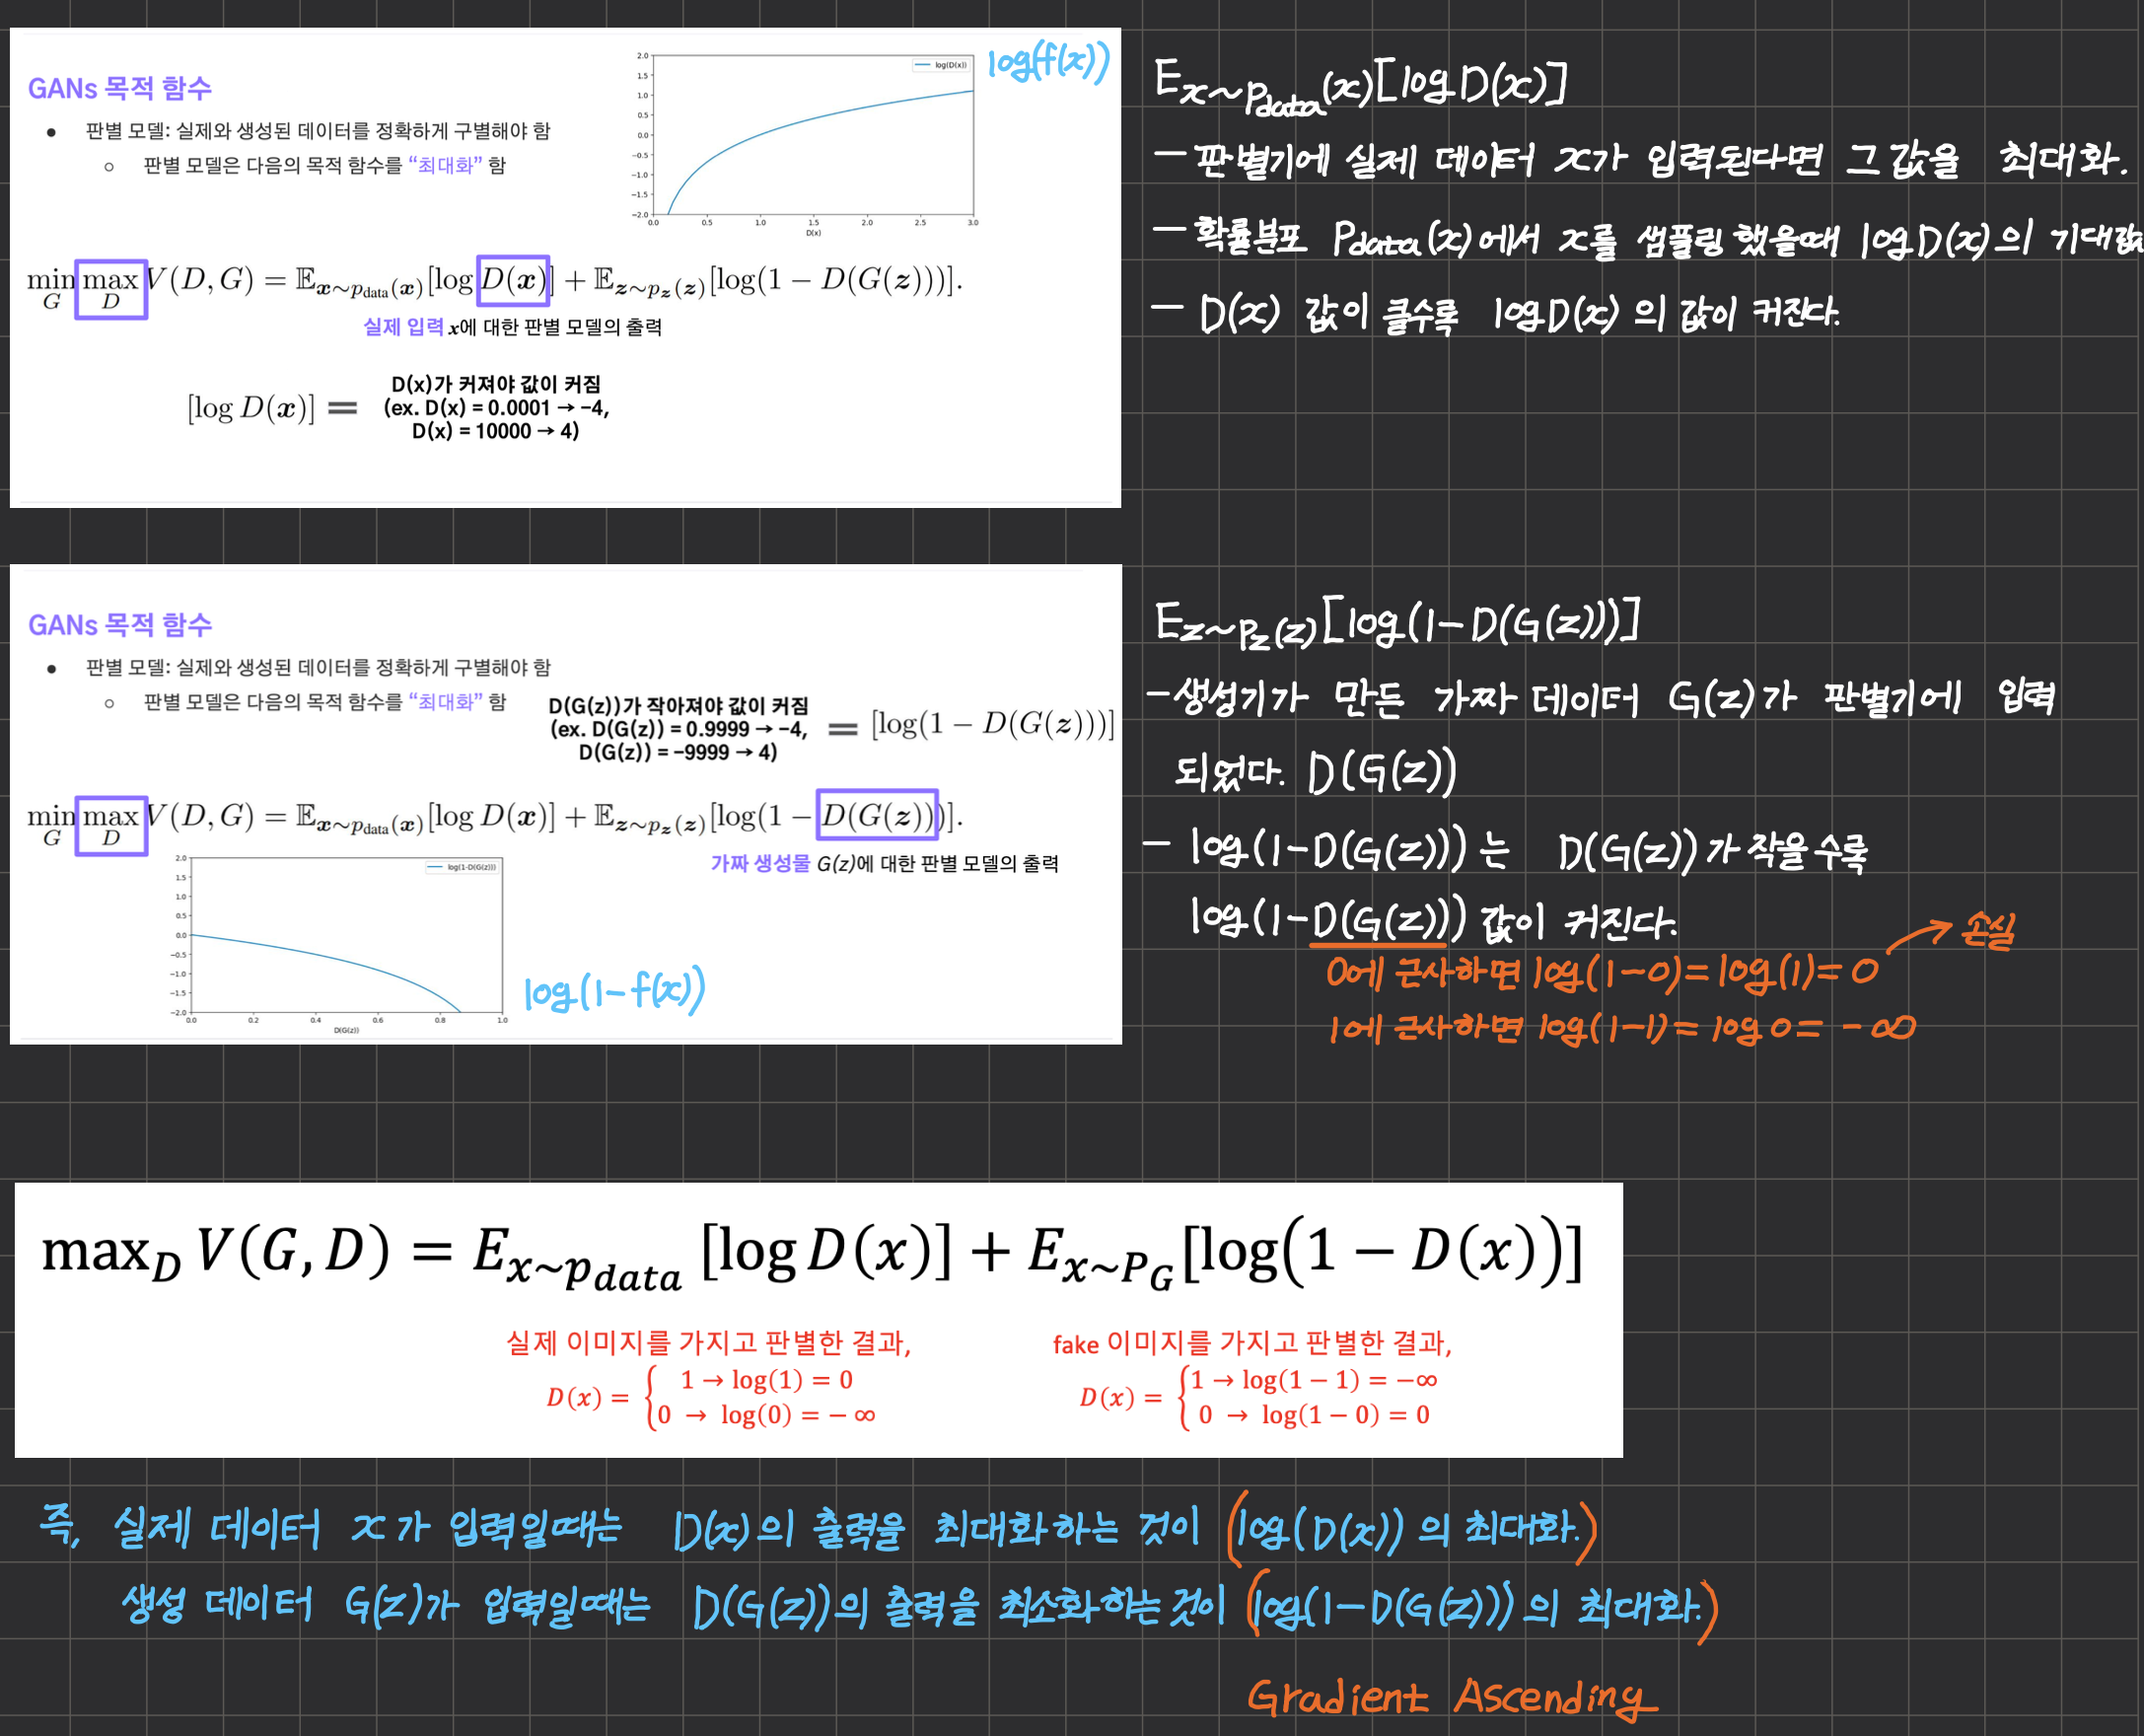 GANs 목적 함수
● 판별 모델: 실제와 생성된 데이터를 정확하게 구별해야 함
○ 판별 모델은 다음의 목적 함수를 “최대화” 함
2.0
1.5
1.0
0.5
0.0
−0.5
−1.0
−1.5
−2.0
0.0 0.5 1.0 1.5 2.0 2.5 3.0
D(x)
log(D(x))
log(f(x))
min_G max_D V(D, G) = 𝔼_{x∼p_data(x)}[log D(x)] + 𝔼_{z∼p_z(z)}[log(1 − D(G(z)))].
실제 입력 x에 대한 판별 모델의 출력
[log D(x)] =
D(x)가 커져야 값이 커짐
(ex. D(x) = 0.0001 → −4,
D(x) = 10000 → 4)
E_{x~Pdata(x)}[log D(x)]
- 판별기에 실제 데이터 x가 입력된다면 그 값을 최대화.
- 확률분포 Pdata(x)에서 x를 샘플링 했을때 log D(x)의 기대값
- D(x) 값이 클수록 log D(x)의 값이 커진다.
GANs 목적 함수
● 판별 모델: 실제와 생성된 데이터를 정확하게 구별해야 함
○ 판별 모델은 다음의 목적 함수를 “최대화” 함
D(G(z))가 작아져야 값이 커짐
(ex. D(G(z)) = 0.9999 → −4,
D(G(z)) = −9999 → 4)
= [log(1 − D(G(z)))]
min_G max_D V(D, G) = 𝔼_{x∼p_data(x)}[log D(x)] + 𝔼_{z∼p_z(z)}[log(1 − D(G(z)))].
가짜 생성물 G(z)에 대한 판별 모델의 출력
2.0
1.5
1.0
0.5
0.0
−0.5
−1.0
−1.5
−2.0
0.0 0.2 0.4 0.6 0.8 1.0
D(G(z))
log(1-D(G(z)))
log(1-f(x))
E_{z~Pz(z)}[log(1-D(G(z)))]
- 생성기가 만든 가짜 데이터 G(z)가 판별기에 입력
되었다. D(G(z))
- log(1-D(G(z)))는 D(G(z))가 작을수록
log(1-D(G(z))) 값이 커진다.
→ 손실
0에 근사하면 log(1-0)=log(1)=0
1에 근사하면 log(1-1)=log 0=-∞
max_D V(G, D) = E_{x~p_data} [log D(x)] + E_{x~P_G}[log(1 − D(x))]
실제 이미지를 가지고 판별한 결과,
D(x) = { 1 → log(1) = 0
0 → log(0) = − ∞
fake 이미지를 가지고 판별한 결과,
D(x) = { 1 → log(1 − 1) = −∞
0 → log(1 − 0) = 0
즉, 실제 데이터 x가 입력일때는 D(x)의 출력을 최대화하는 것이 (log(D(x))의 최대화.)
생성 데이터 G(z)가 입력일때는 D(G(z))의 출력을 최소화하는 것이 (log(1-D(G(z)))의 최대화.)
Gradient Ascending